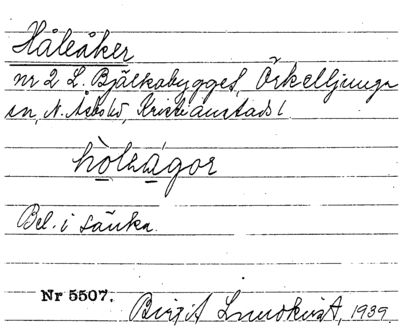 Håleåker
nr 2 L. Bjälkabygget, Örkelljunga
sn, N. Åsbo hd, Kristianstads l
hòleágor
Bel. i sänka.
Nr 5507. Birgit Lundkvist, 1939.